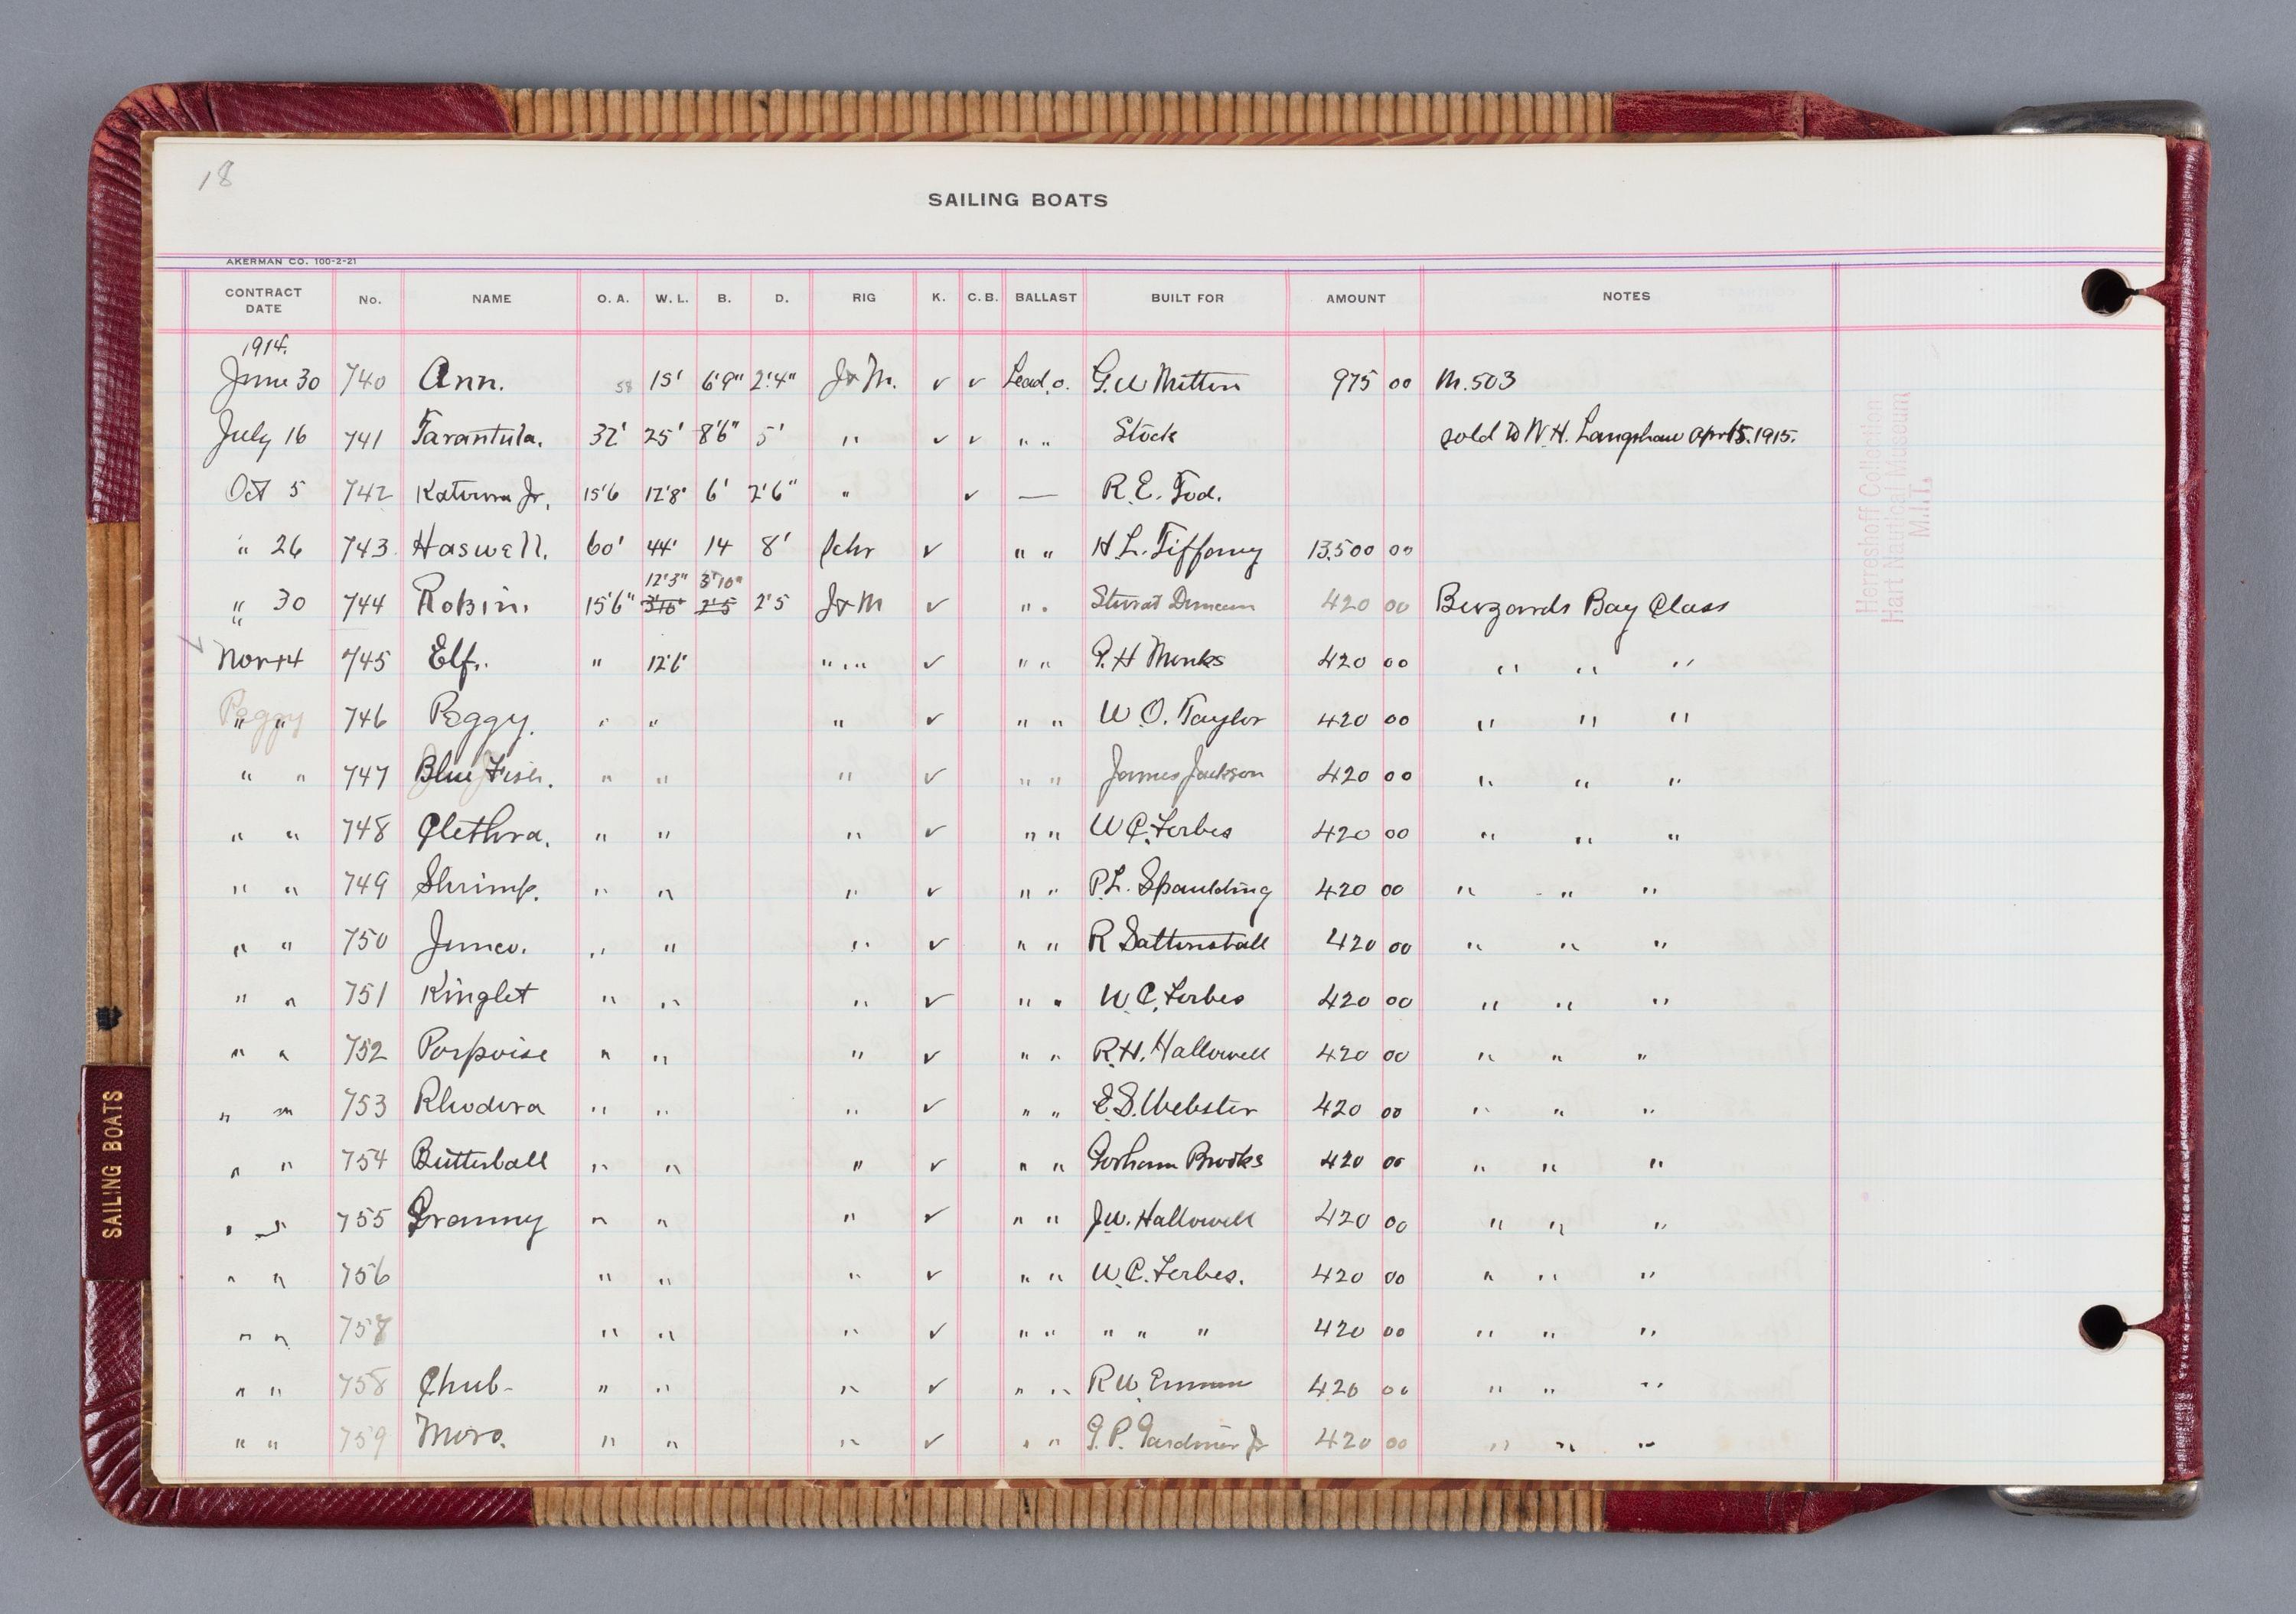 18
SAILING BOATS
AKERMAN CO. 100-2-21
CONTRACT DATE No. NAME O. A. W. L. B. D. RIG K. C. B. BALLAST BUILT FOR AMOUNT NOTES
1914.
June 30 740 Ann. 15' 6'9" 2'4" J & M. ✓ ✓ Lead o. G. W Mitton 975 00 M. 503
July 16 741 Tarantula. 32' 25' 8'6" 5' " ✓ ✓ " " Stock sold to W. H. Langshaw Apr 15. 1915.
Oct 5 742 Katrina Jr. 15'6 12'8" 6' 2'6" " ✓ — R. E. Tod.
" 26 743 Haswell. 60' 44' 14 8' Schr ✓ " " H L. Tiffany 13,500 00
12'3" 3'10"
" 30 744 Robin. 15'6" 2'5 J & M ✓ " " Sturat Duncan 420 00 Buzzards Bay Class
Nov 14 745 Elf. " 12'6" " " " ✓ " " P. H Monks 420 00 " " "
Peggy
" " 746 Peggy. " " " ✓ " " W. O. Taylor 420 00 " " "
" " 747 Blue Fish. " " " ✓ " " James Jackson 420 00 " " "
" " 748 Clethra. " " " ✓ " " W C. Forbes 420 00 " " "
" " 749 Shrimp. " " " ✓ " " P. L. Spaulding 420 00 " " "
" " 750 Junco. " " " ✓ " " R Saltonstall 420 00 " " "
" " 751 Kinglet " " " ✓ " " W. C. Forbes 420 00 " " "
" " 752 Porpoise " " " ✓ " " R. H. Hallowell 420 00 " " "
" " 753 Rhodora " " " ✓ " " E. S. Webster 420 00 " " "
" " 754 Butterball " " " ✓ " " Gorham Brooks 420 00 " " "
" " 755 Granny " " " ✓ " " J. W. Hallowell 420 00 " " "
" " 756 " " " ✓ " " W. C. Forbes. 420 00 " " "
" " 758 " " " ✓ " " " " " 420 00 " " "
" " 758 Chub- " " " ✓ " " R W. Emmons 420 00 " " "
" " 759 Moro. " " " ✓ " " G. P. Gardiner Jr 420 00 " " "
Herreshoff Collection
Hart Nautical Museum
M.I.T.
SAILING BOATS